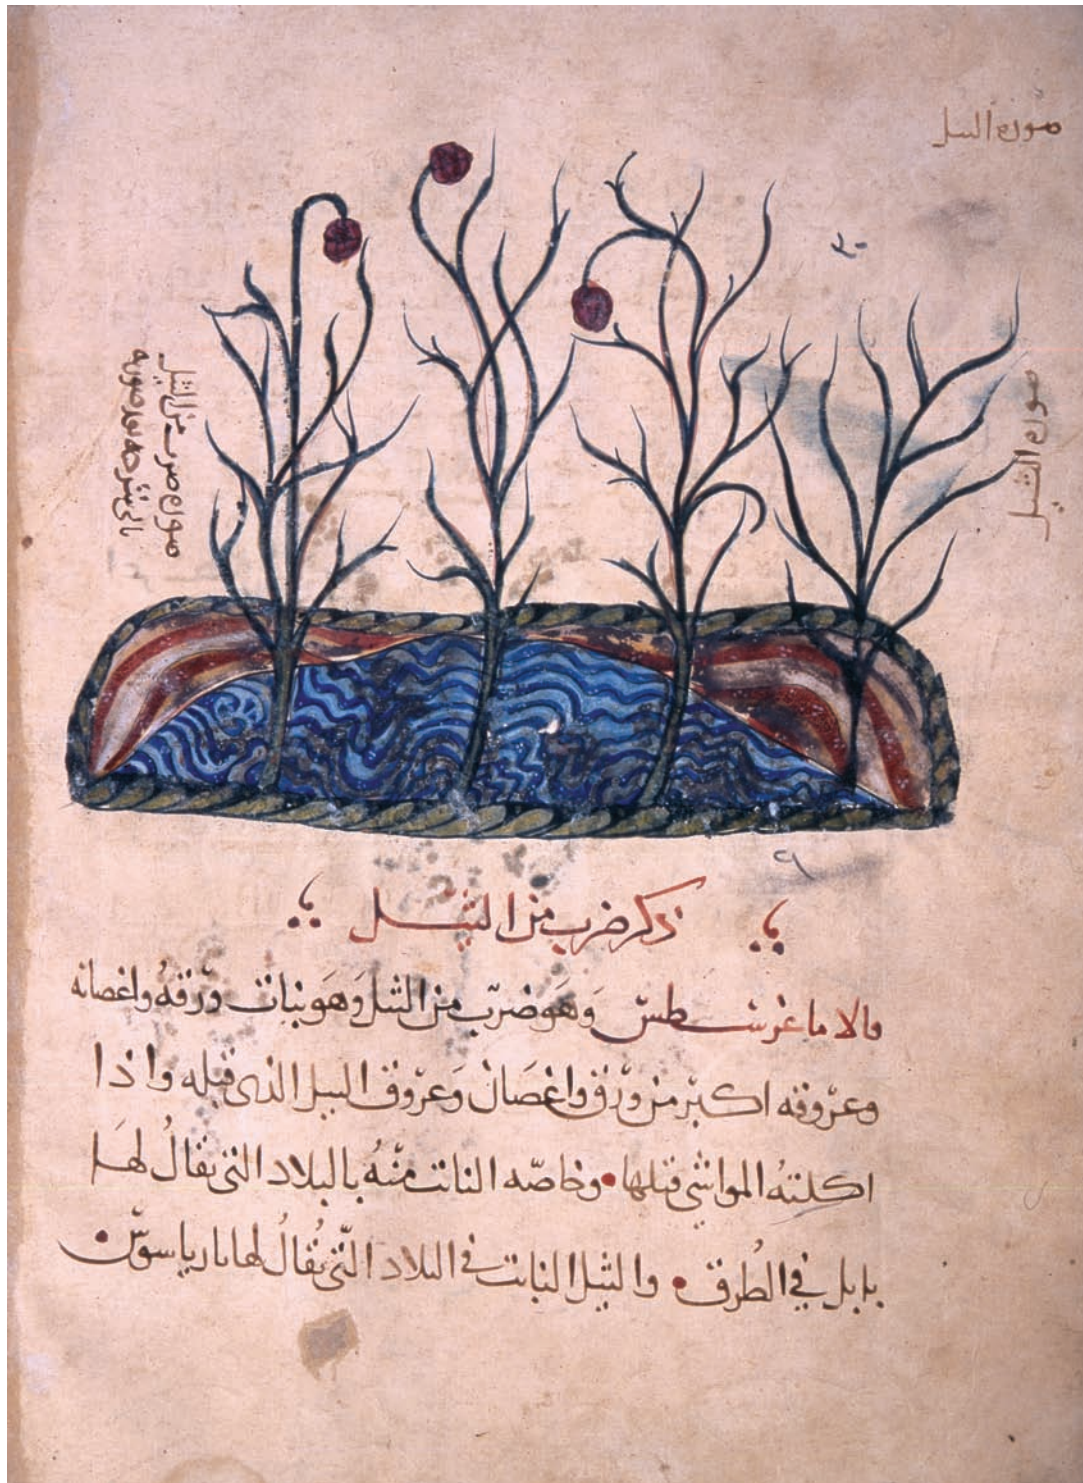 صورة الثيل
صورة الثيل
صورة ضرب من الثيل
ياتي شرحه بعد صورته
ذكر ضرب من الثيل
قالاماغرسطس وهو ضرب من الثيل وهو نبات ورقه واغصانه
وعروقه اكبر من ورق واغصان وعروق الثيل الذي قبله واذا
اكلته المواشي قتلها وخاصه النابت منه بالبلاد التي يقال لها
بابل في الطرق والثيل النابت في البلاد التي يقال لها بارياسوس